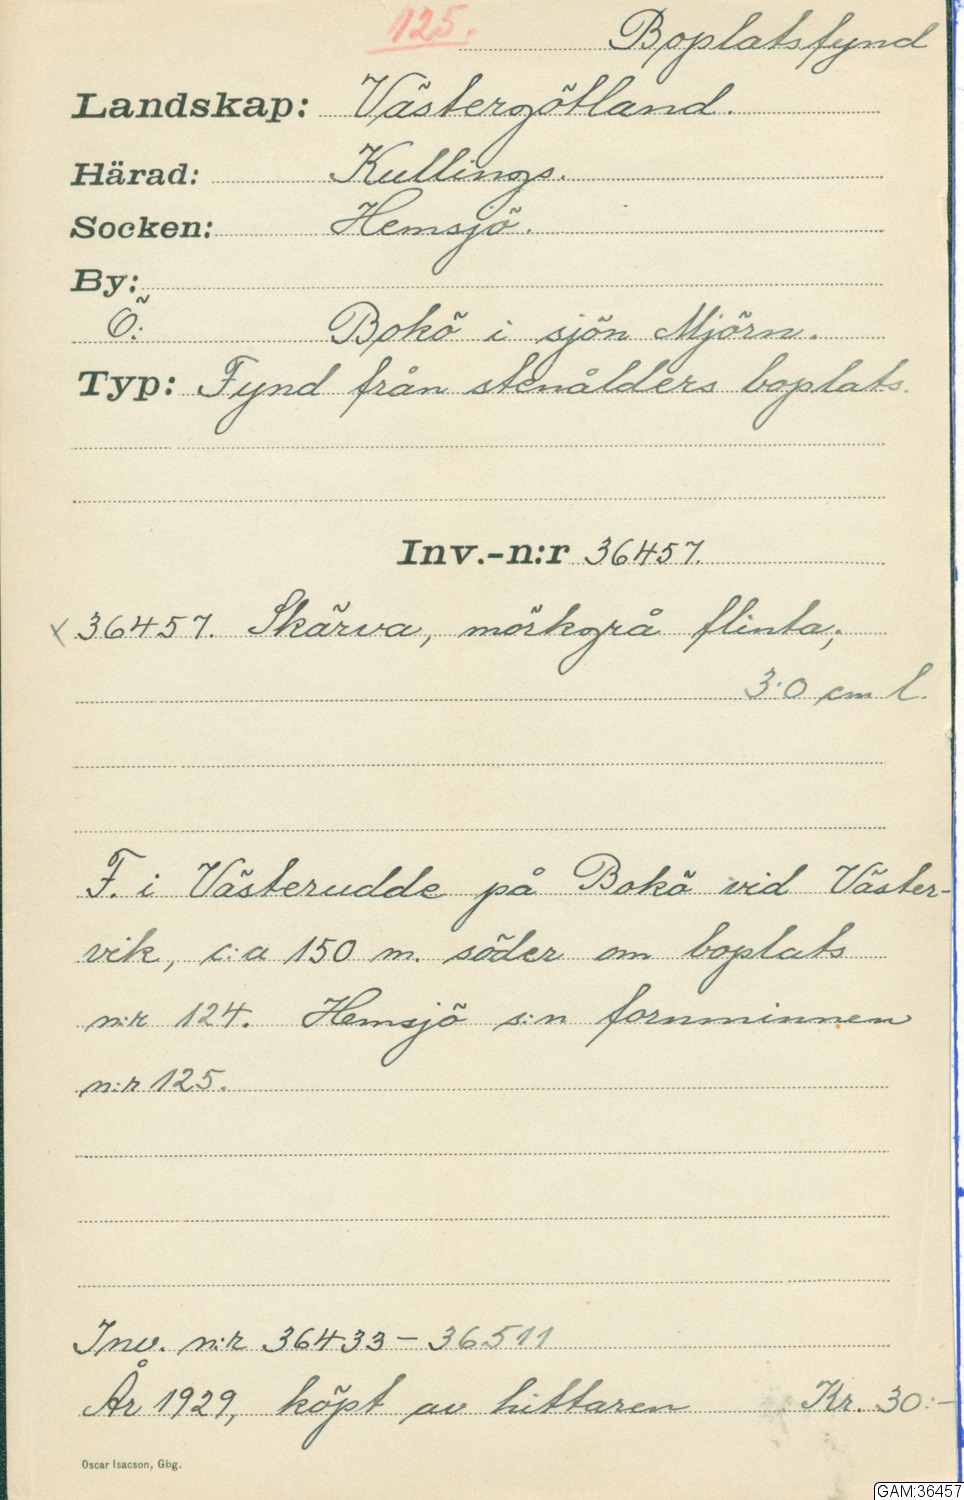 125. Boplatsfynd
Landskap: Västergötland.
Härad: Kullings.
Socken: Hemsjö.
By:
Ö: Bokö i sjön Mjörn.
Typ: Fynd från stenålders boplats.
Inv.-n:r 36457.
x 36457. Skärva, mörkgrå flinta;
3.0 cm l.
F. i Västerudde på Bokö vid Väster-
vik, c:a 150 m. söder om boplats
n:r 124. Hemsjö s:n fornminnen
n:r 125.
Inv. n:r 36433–36511
År 1929, köpt av hittaren Kr. 30:–
Oscar Isacson, Gbg.
GAM:36457